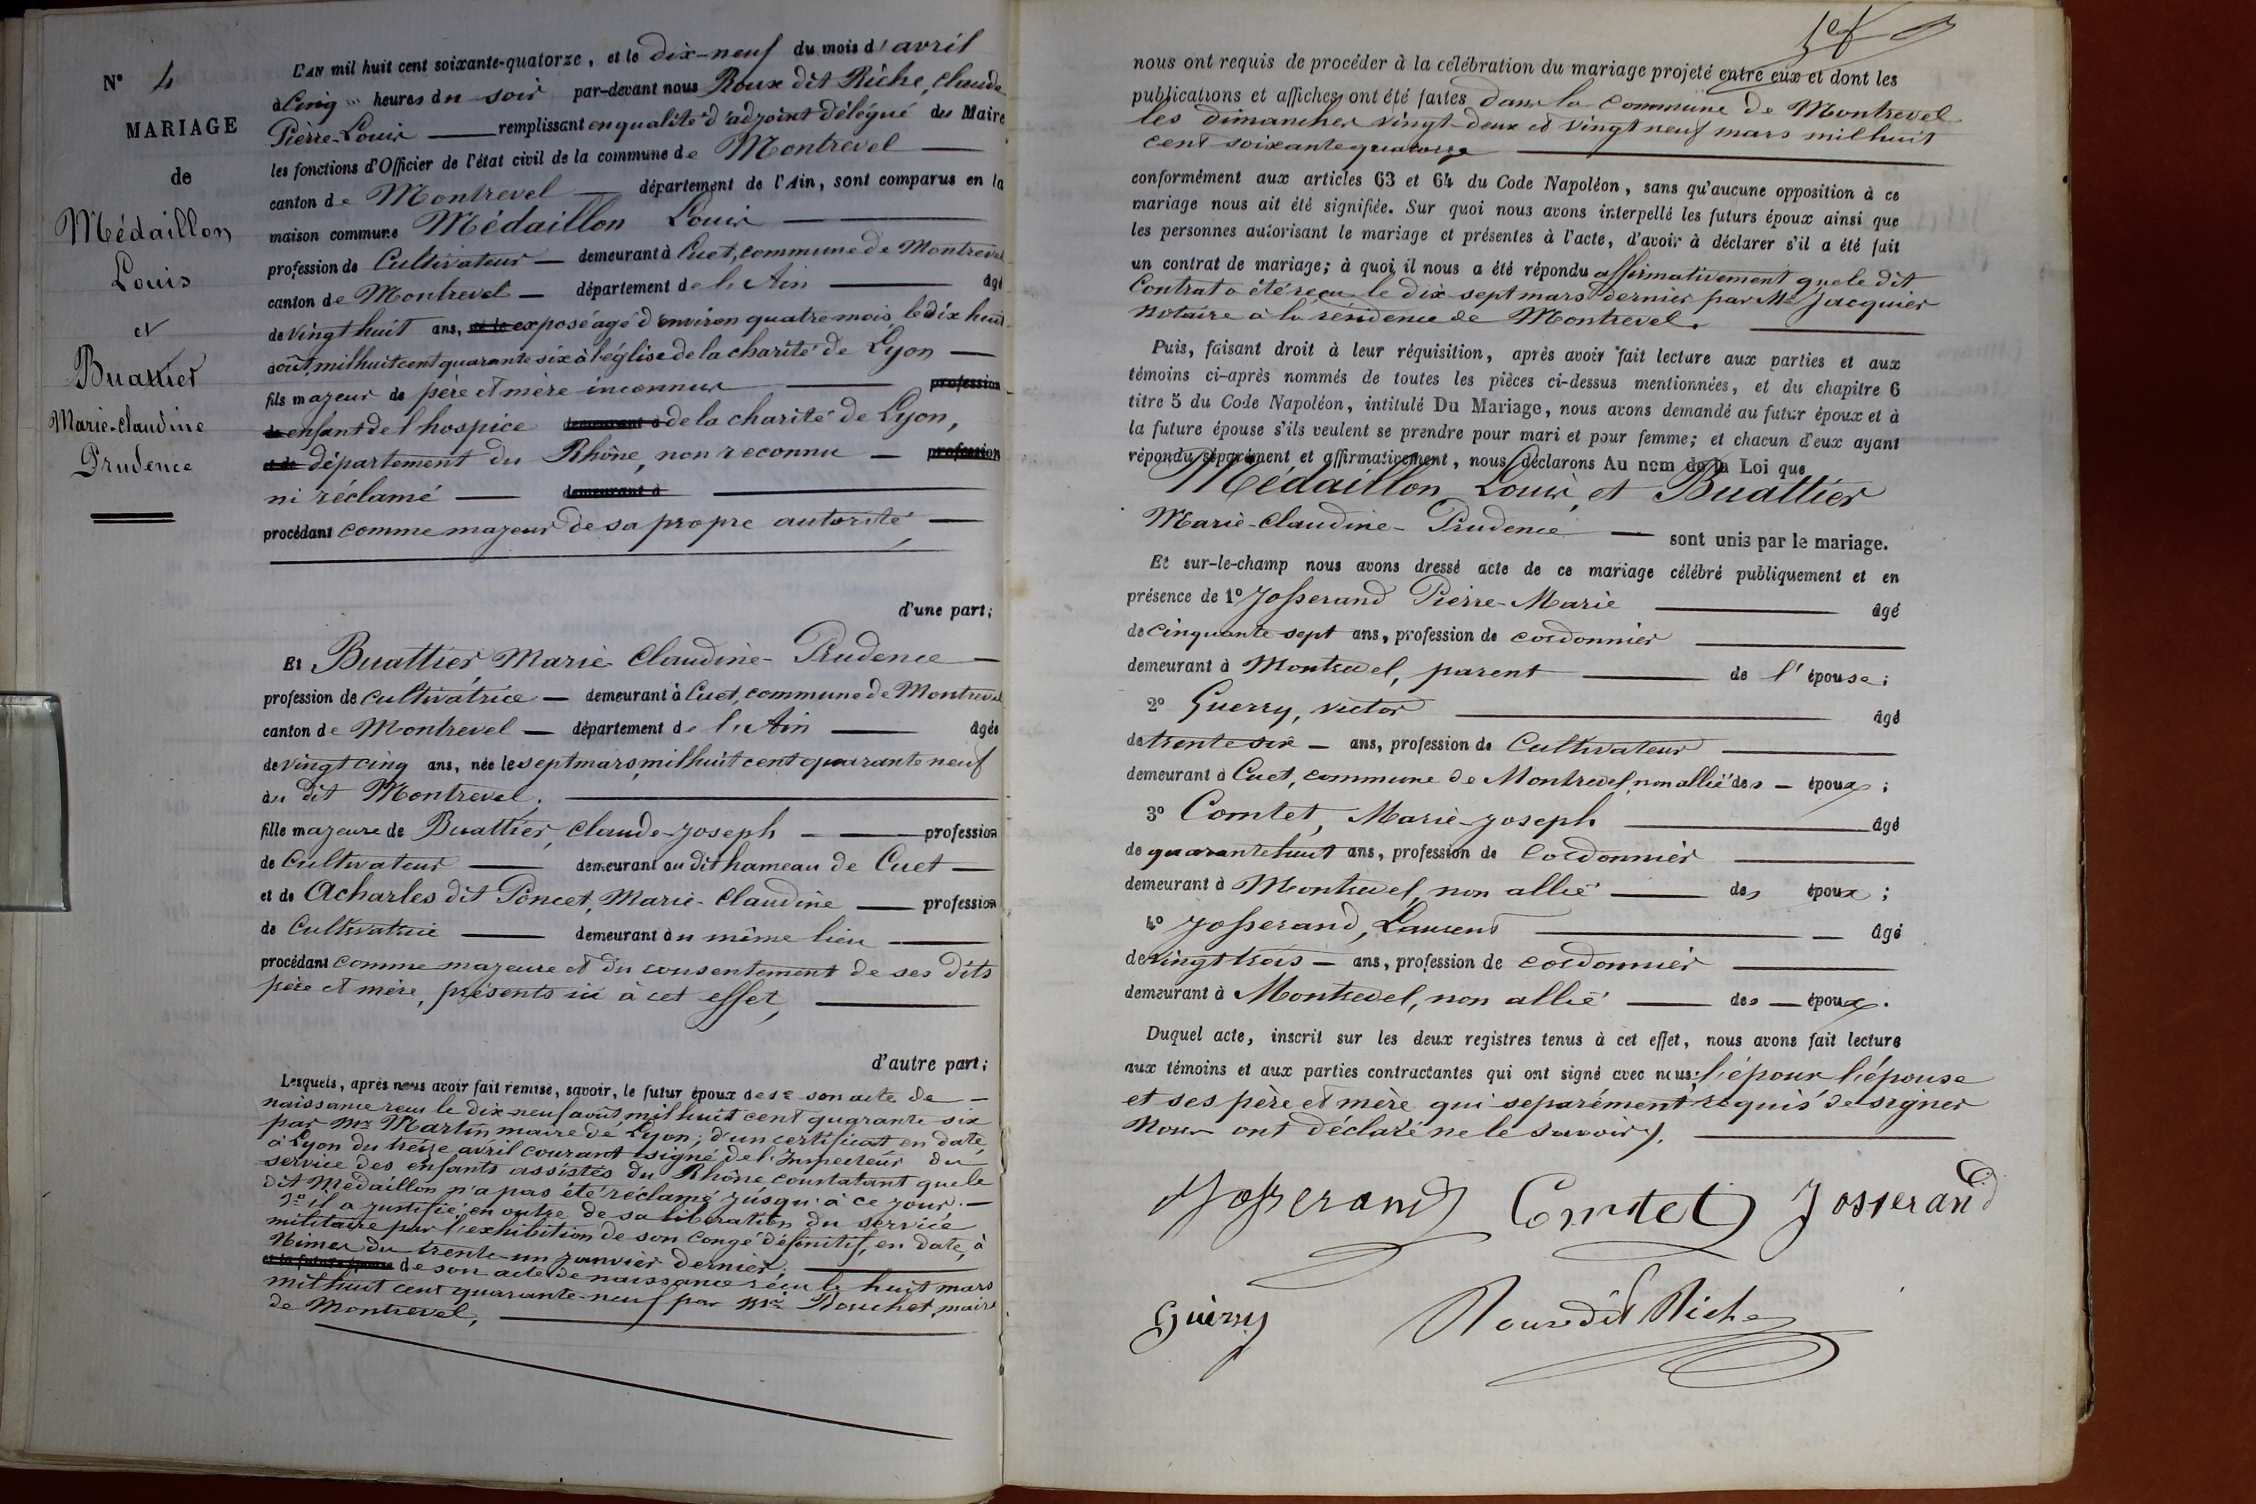 N° 4
MARIAGE
de
Médaillon
Louis
et
Buattier
Marie-Claudine
Prudence
L'AN mil huit cent soixante-quatorze, et le dix-neuf du mois d'avril
à Cinq heures du soir par-devant nous Roux dit Riche, Claude
Pierre-Louis remplissant en qualité d'adjoint délégué du Maire
les fonctions d'Officier de l'état civil de la commune de Montrevel
canton de Montrevel département de l'Ain, sont comparus en la
maison commune Médaillon Louis
profession de Cultivateur demeurant à Cuet, commune de Montrevel
canton de Montrevel département de l'Ain âgé
de vingt huit ans, né le exposé âgé d'environ quatre mois, le dix huit
août mil huit cent quarante six à l'église de la charité de Lyon
fils majeur de père et mère inconnus profession
de enfant de l'hospice demeurant à de la charité de Lyon,
et de département du Rhône, non reconnu profession
ni réclamé demeurant à
procédant comme majeur de sa propre autorité,
d'une part;
Et Buattier, Marie Claudine-Prudence
profession de cultivatrice demeurant à Cuet, commune de Montrevel
canton de Montrevel département de l'Ain âgée
de vingt cinq ans, née le sept mars, mil huit cent quarante neuf
au dit Montrevel.
fille majeure de Buattier, Claude-Joseph profession
de Cultivateur demeurant au dit hameau de Cuet
et de Acharles dit Poncet, Marie-Claudine profession
de Cultivatrice demeurant au même lieu
procédant comme majeure et du consentement de ses dits
père et mère, présents ici à cet effet,
d'autre part;
Lesquels, après nous avoir fait remise, savoir, le futur époux de se son acte de
naissance reçu le dix-neuf août mil huit cent quarante six
par Mr Martin maire de Lyon; d'un certificat en date
à Lyon du treize avril courant signé de l'Inspecteur du
service des enfants assistés du Rhône constatant que le
dit Médaillon n'a pas été réclamé jusqu'à ce jour.
2° il a justifié en outre de sa libération du service
militaire par l'exhibition de son congé définitif, en date, à
Nîmes du trente-un janvier dernier.
et la future épouse de son acte de naissance réçu le huit mars
mil huit cent quarante-neuf par Mr Rouchet, maire
de Montrevel,
nous ont requis de procéder à la célébration du mariage projeté entre eux et dont les
publications et affiches ont été faites dans la Commune de Montrevel
les dimanches vingt-deux et vingt neuf mars mil huit
cent soixante quatorze
conformément aux articles 63 et 64 du Code Napoléon, sans qu'aucune opposition à ce
mariage nous ait été signifiée. Sur quoi nous avons interpellé les futurs époux ainsi que
les personnes autorisant le mariage et présentes à l'acte, d'avoir à déclarer s'il a été fait
un contrat de mariage; à quoi il nous a été répondu affirmativement que le dit
Contrat a été reçu le dix-sept mars dernier par Me Jacquier
notaire à la résidence de Montrevel.
Puis, faisant droit à leur réquisition, après avoir fait lecture aux parties et aux
témoins ci-après nommés de toutes les pièces ci-dessus mentionnées, et du chapitre 6
titre 5 du Code Napoléon, intitulé Du Mariage, nous avons demandé au futur époux et à
la future épouse s'ils veulent se prendre pour mari et pour femme; et chacun d'eux ayant
répondu séparément et affirmativement, nous déclarons Au nom de la Loi que
Médaillon Louis, et Buattier
Marie-Claudine-Prudence sont unis par le mariage.
Et sur-le-champ nous avons dressé acte de ce mariage célébré publiquement et en
présence de 1° Josserand Pierre-Marie âgé
de cinquante sept ans, profession de cordonnier
demeurant à Montrevel, parent de l'épouse;
2° Guerry, victor âgé
de trente six ans, profession de Cultivateur
demeurant à Cuet, commune de Montrevel, non allié des époux;
3° Comtet, Marie-Joseph âgé
de quarante huit ans, profession de Cordonnier
demeurant à Montrevel, non allié des époux;
4° Josserand, Laurent âgé
de vingt trois ans, profession de cordonnier
demeurant à Montrevel, non allié des époux.
Duquel acte, inscrit sur les deux registres tenus à cet effet, nous avons fait lecture
aux témoins et aux parties contractantes qui ont signé avec nous, l'époux l'épouse
et ses père et mère qui separément requis de signer
nous ont déclaré ne le savoir.
Josserand Comtet Josserand
Guerry Roux dit Riche